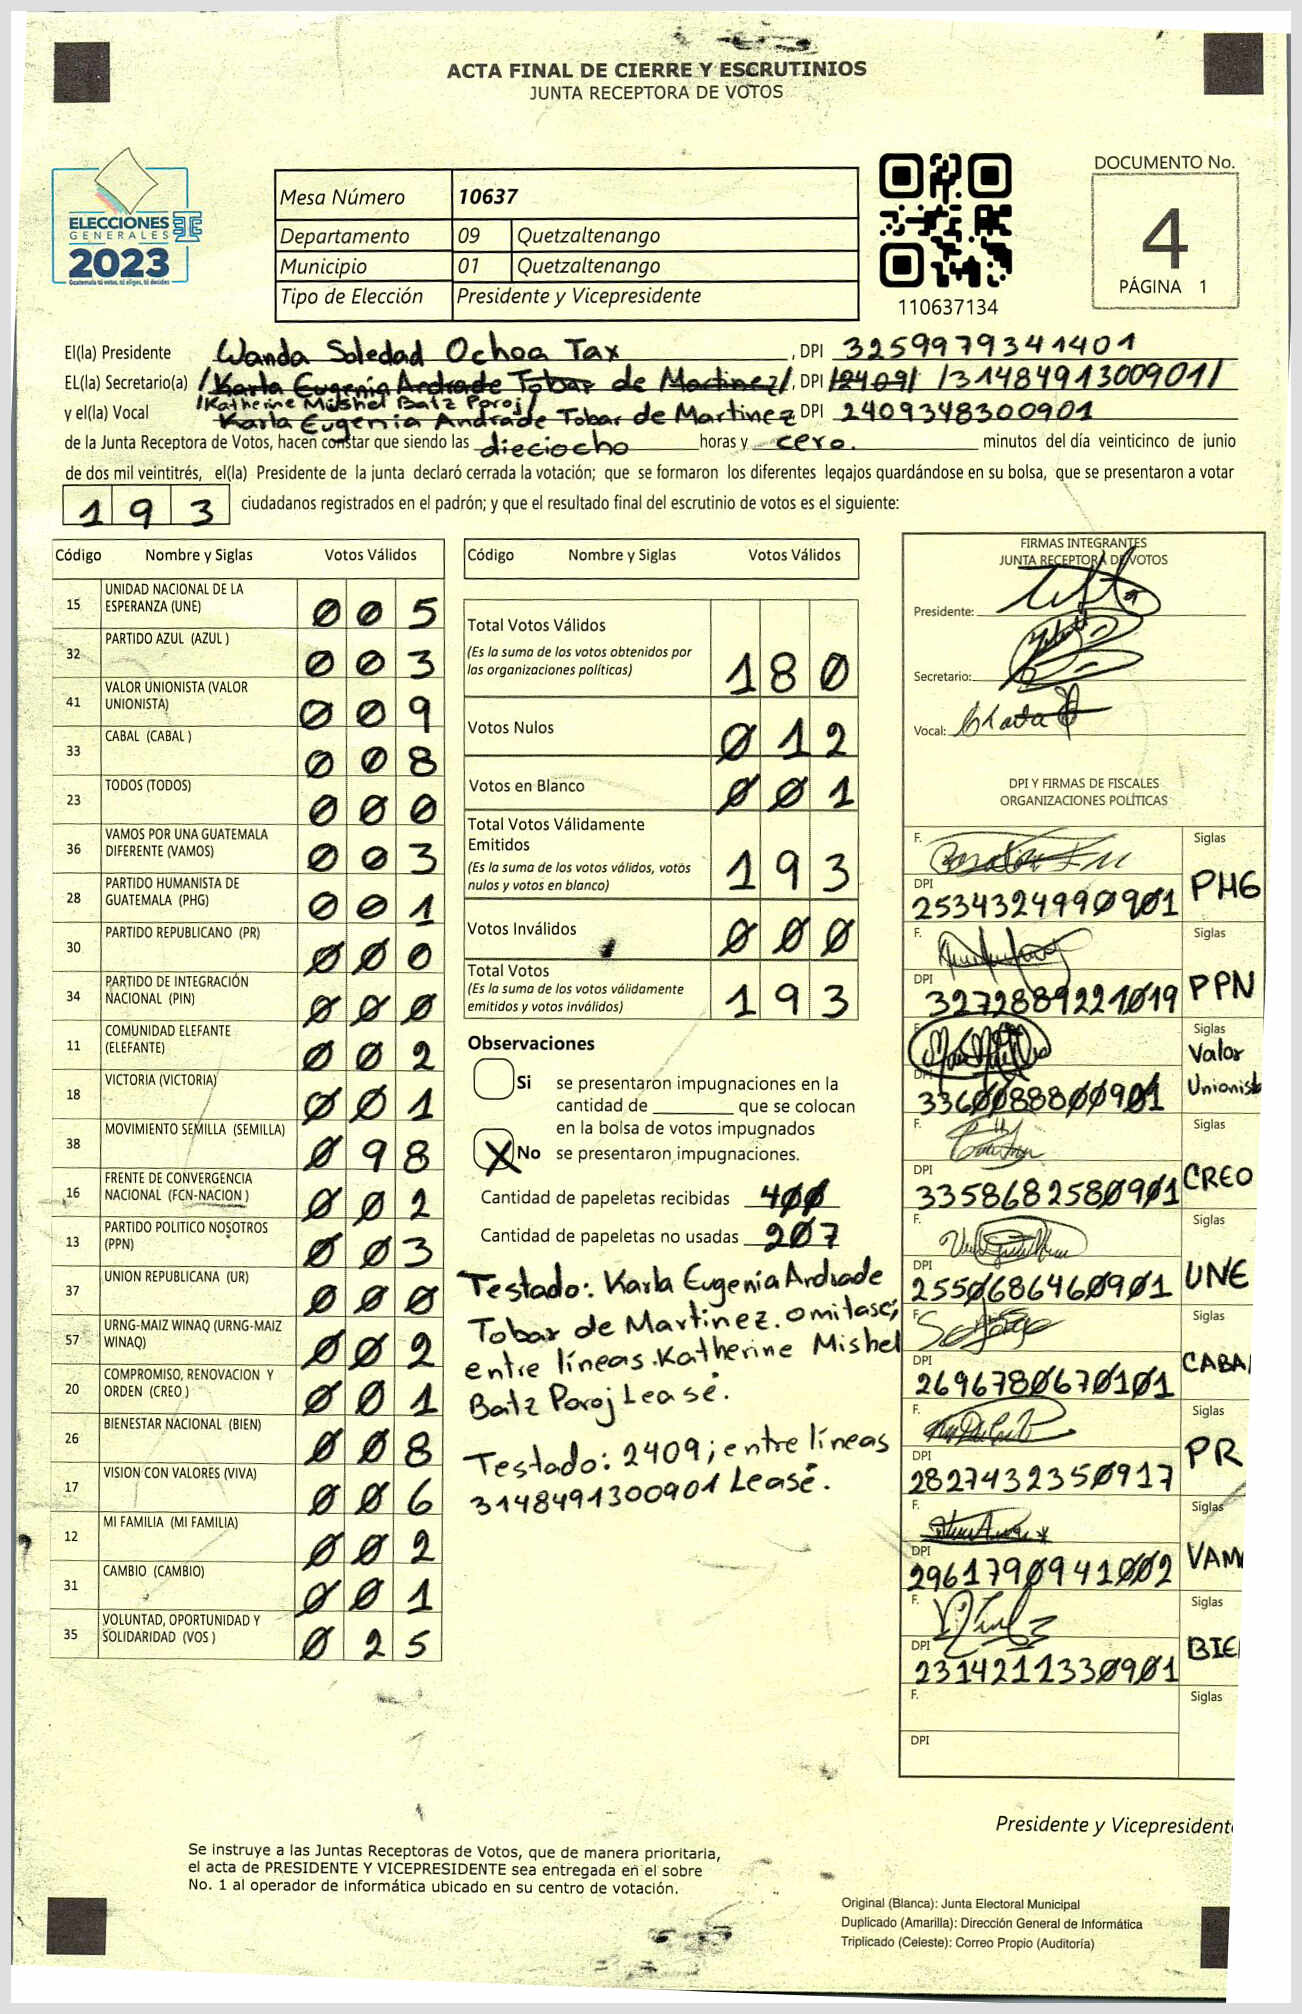 ACTA FINAL DE CIERRE Y ESCRUTINIOS
JUNTA RECEPTORA DE VOTOS
ELECCIONES
GENERALES
2023
Guatemala tú votas, tú eliges, tú decides
Mesa Número 10637
Departamento 09 Quetzaltenango
Municipio 01 Quetzaltenango
Tipo de Elección Presidente y Vicepresidente
110637134
DOCUMENTO No.
4
PÁGINA 1
El(la) Presidente Wanda Soledad Ochoa Tax, DPI 3259979341401
EL(la) Secretario(a) /Karla Eugenia Andrade Tobar de Martinez/, DPI /2409/ /3148491300901/
/Katherine Mishel Batz Poroj/
y el(la) Vocal Karla Eugenia Andrade Tobar de Martinez DPI 2409348300901
de la Junta Receptora de Votos, hacen constar que siendo las dieciocho horas y cero. minutos del día veinticinco de junio
de dos mil veintitrés, el(la) Presidente de la junta declaró cerrada la votación; que se formaron los diferentes legajos guardándose en su bolsa, que se presentaron a votar
193 ciudadanos registrados en el padrón; y que el resultado final del escrutinio de votos es el siguiente:
Código Nombre y Siglas Votos Válidos
15 UNIDAD NACIONAL DE LA ESPERANZA (UNE) 005
32 PARTIDO AZUL (AZUL ) 003
41 VALOR UNIONISTA (VALOR UNIONISTA) 009
33 CABAL (CABAL ) 008
23 TODOS (TODOS) 000
36 VAMOS POR UNA GUATEMALA DIFERENTE (VAMOS) 003
28 PARTIDO HUMANISTA DE GUATEMALA (PHG) 001
30 PARTIDO REPUBLICANO (PR) 000
34 PARTIDO DE INTEGRACIÓN NACIONAL (PIN) 000
11 COMUNIDAD ELEFANTE (ELEFANTE) 002
18 VICTORIA (VICTORIA) 001
38 MOVIMIENTO SEMILLA (SEMILLA) 098
16 FRENTE DE CONVERGENCIA NACIONAL (FCN-NACION ) 002
13 PARTIDO POLITICO NOSOTROS (PPN) 003
37 UNION REPUBLICANA (UR) 000
57 URNG-MAIZ WINAQ (URNG-MAIZ WINAQ) 002
20 COMPROMISO, RENOVACION Y ORDEN (CREO ) 001
26 BIENESTAR NACIONAL (BIEN) 008
17 VISION CON VALORES (VIVA) 006
12 MI FAMILIA (MI FAMILIA) 002
31 CAMBIO (CAMBIO) 001
35 VOLUNTAD, OPORTUNIDAD Y SOLIDARIDAD (VOS ) 025
Código Nombre y Siglas Votos Válidos
Total Votos Válidos 180
(Es la suma de los votos obtenidos por
las organizaciones políticas)
Votos Nulos 012
Votos en Blanco 001
Total Votos Válidamente
Emitidos 193
(Es la suma de los votos válidos, votos
nulos y votos en blanco)
Votos Inválidos 000
Total Votos 193
(Es la suma de los votos válidamente
emitidos y votos inválidos)
Observaciones
Si se presentaron impugnaciones en la
cantidad de ________ que se colocan
en la bolsa de votos impugnados
X No se presentaron impugnaciones.
Cantidad de papeletas recibidas 400
Cantidad de papeletas no usadas 207
Testado: Karla Eugenia Andrade
Tobar de Martinez. omitase;
entre líneas. Katherine Mishel
Batz Poroj Lease.
Testado: 2409; entre líneas
3148491300901 Lease.
FIRMAS INTEGRANTES
JUNTA RECEPTORA DE VOTOS
Presidente:
Secretario:
Vocal:
DPI Y FIRMAS DE FISCALES
ORGANIZACIONES POLÍTICAS
F. Siglas
DPI 2534324990901 PHG
F. Siglas
DPI 3272889221019 PPN
F. Siglas
DPI 3360088800901 Valor Unionist
F. Siglas
DPI 3358682580901 CREO
F. Siglas
DPI 2550686460901 UNE
F. Siglas
DPI 2696780670101 CABA
F. Siglas
DPI 2827432350917 PR
F. Siglas
DPI 2961790941002 VAM
F. Siglas
DPI 2314211330901 BIE
F. Siglas
DPI
Presidente y Vicepresident
Se instruye a las Juntas Receptoras de Votos, que de manera prioritaria,
el acta de PRESIDENTE Y VICEPRESIDENTE sea entregada en el sobre
No. 1 al operador de informática ubicado en su centro de votación.
Original (Blanca): Junta Electoral Municipal
Duplicado (Amarilla): Dirección General de Informática
Triplicado (Celeste): Correo Propio (Auditoría)